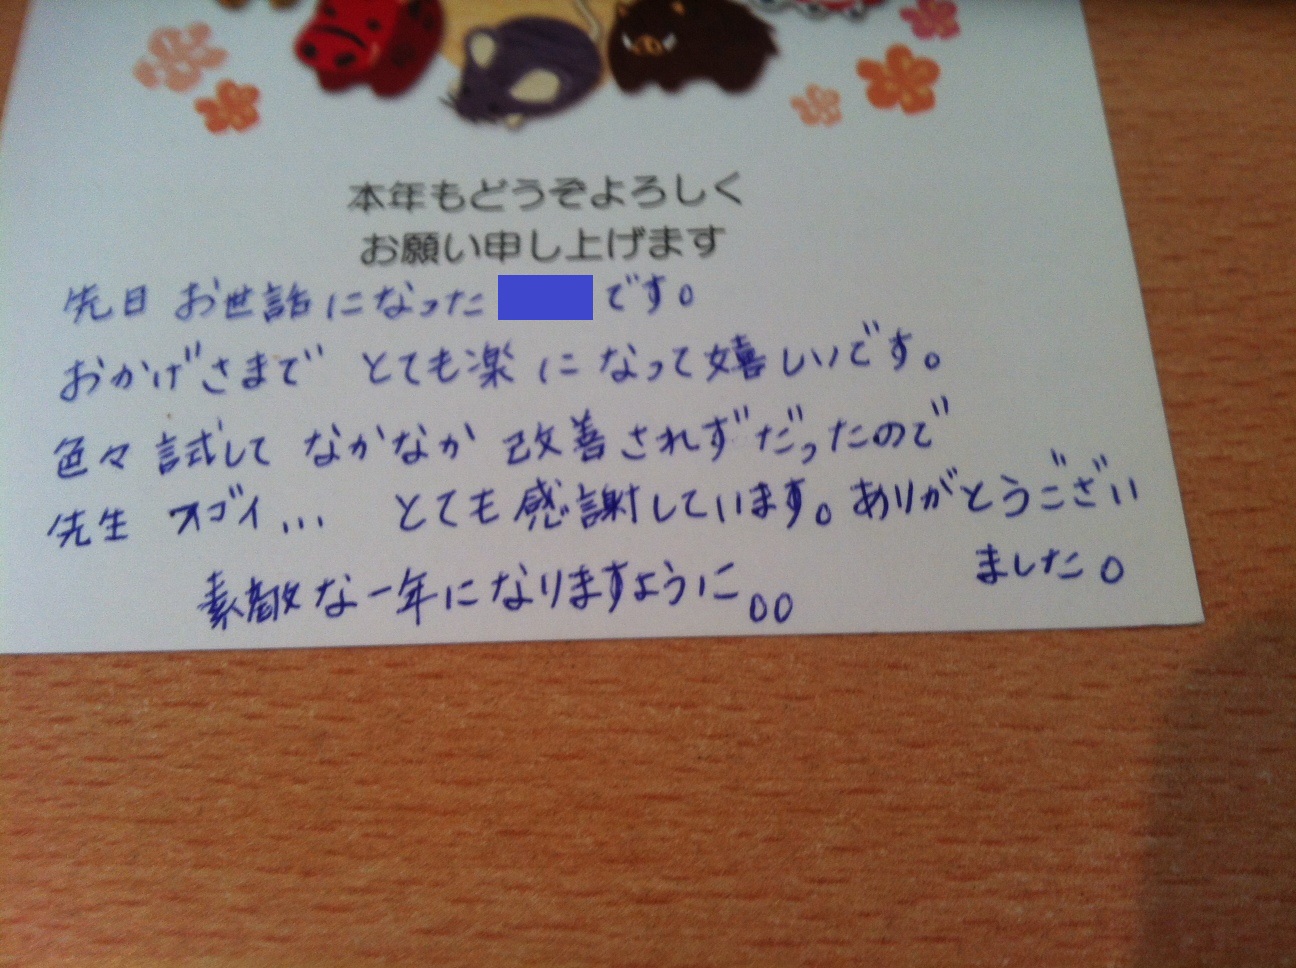 本年もどうぞよろしく
お願い申し上げます
先日 お世話になった です。
おかげさまで とても楽になって嬉しいです。
色々試して なかなか 改善されずだったので
先生 スゴイ... とても感謝しています。ありがとうござい
ました。
素敵な一年になりますように。。